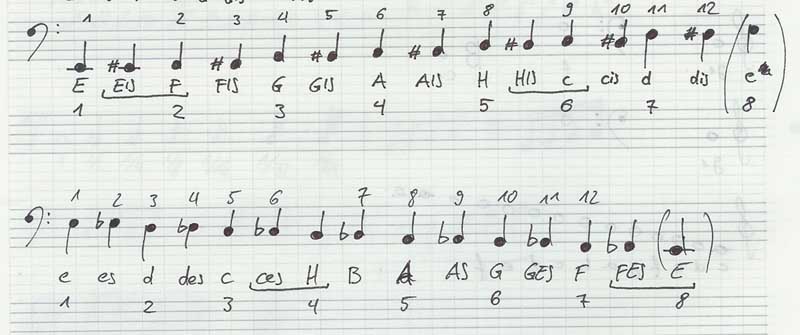 1 2 3 4 5 6 7 8 9 10 11 12
E EIS F FIS G GIS A AIS H HIS c cis d dis e
1 2 3 4 5 6 7 8
1 2 3 4 5 6 7 8 9 10 11 12
e es d des c ces H B A AS G GES F FES E
1 2 3 4 5 6 7 8